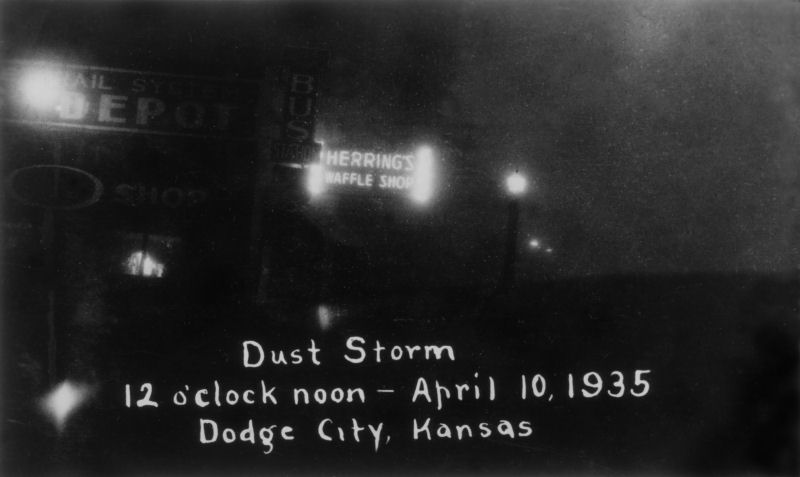 AIL SYSTEM
DEPOT
BUS
HERRING'S
WAFFLE SHOP
SHOP
Dust Storm
12 o'clock noon - April 10, 1935
Dodge City, Kansas